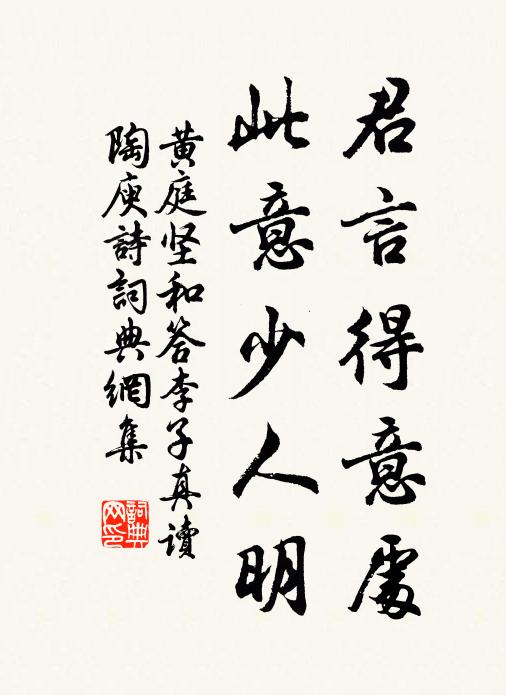 君言得意處
此意少人明
黄庭坚和答李子真讀
陶庾詩詞典網集
詞典网印